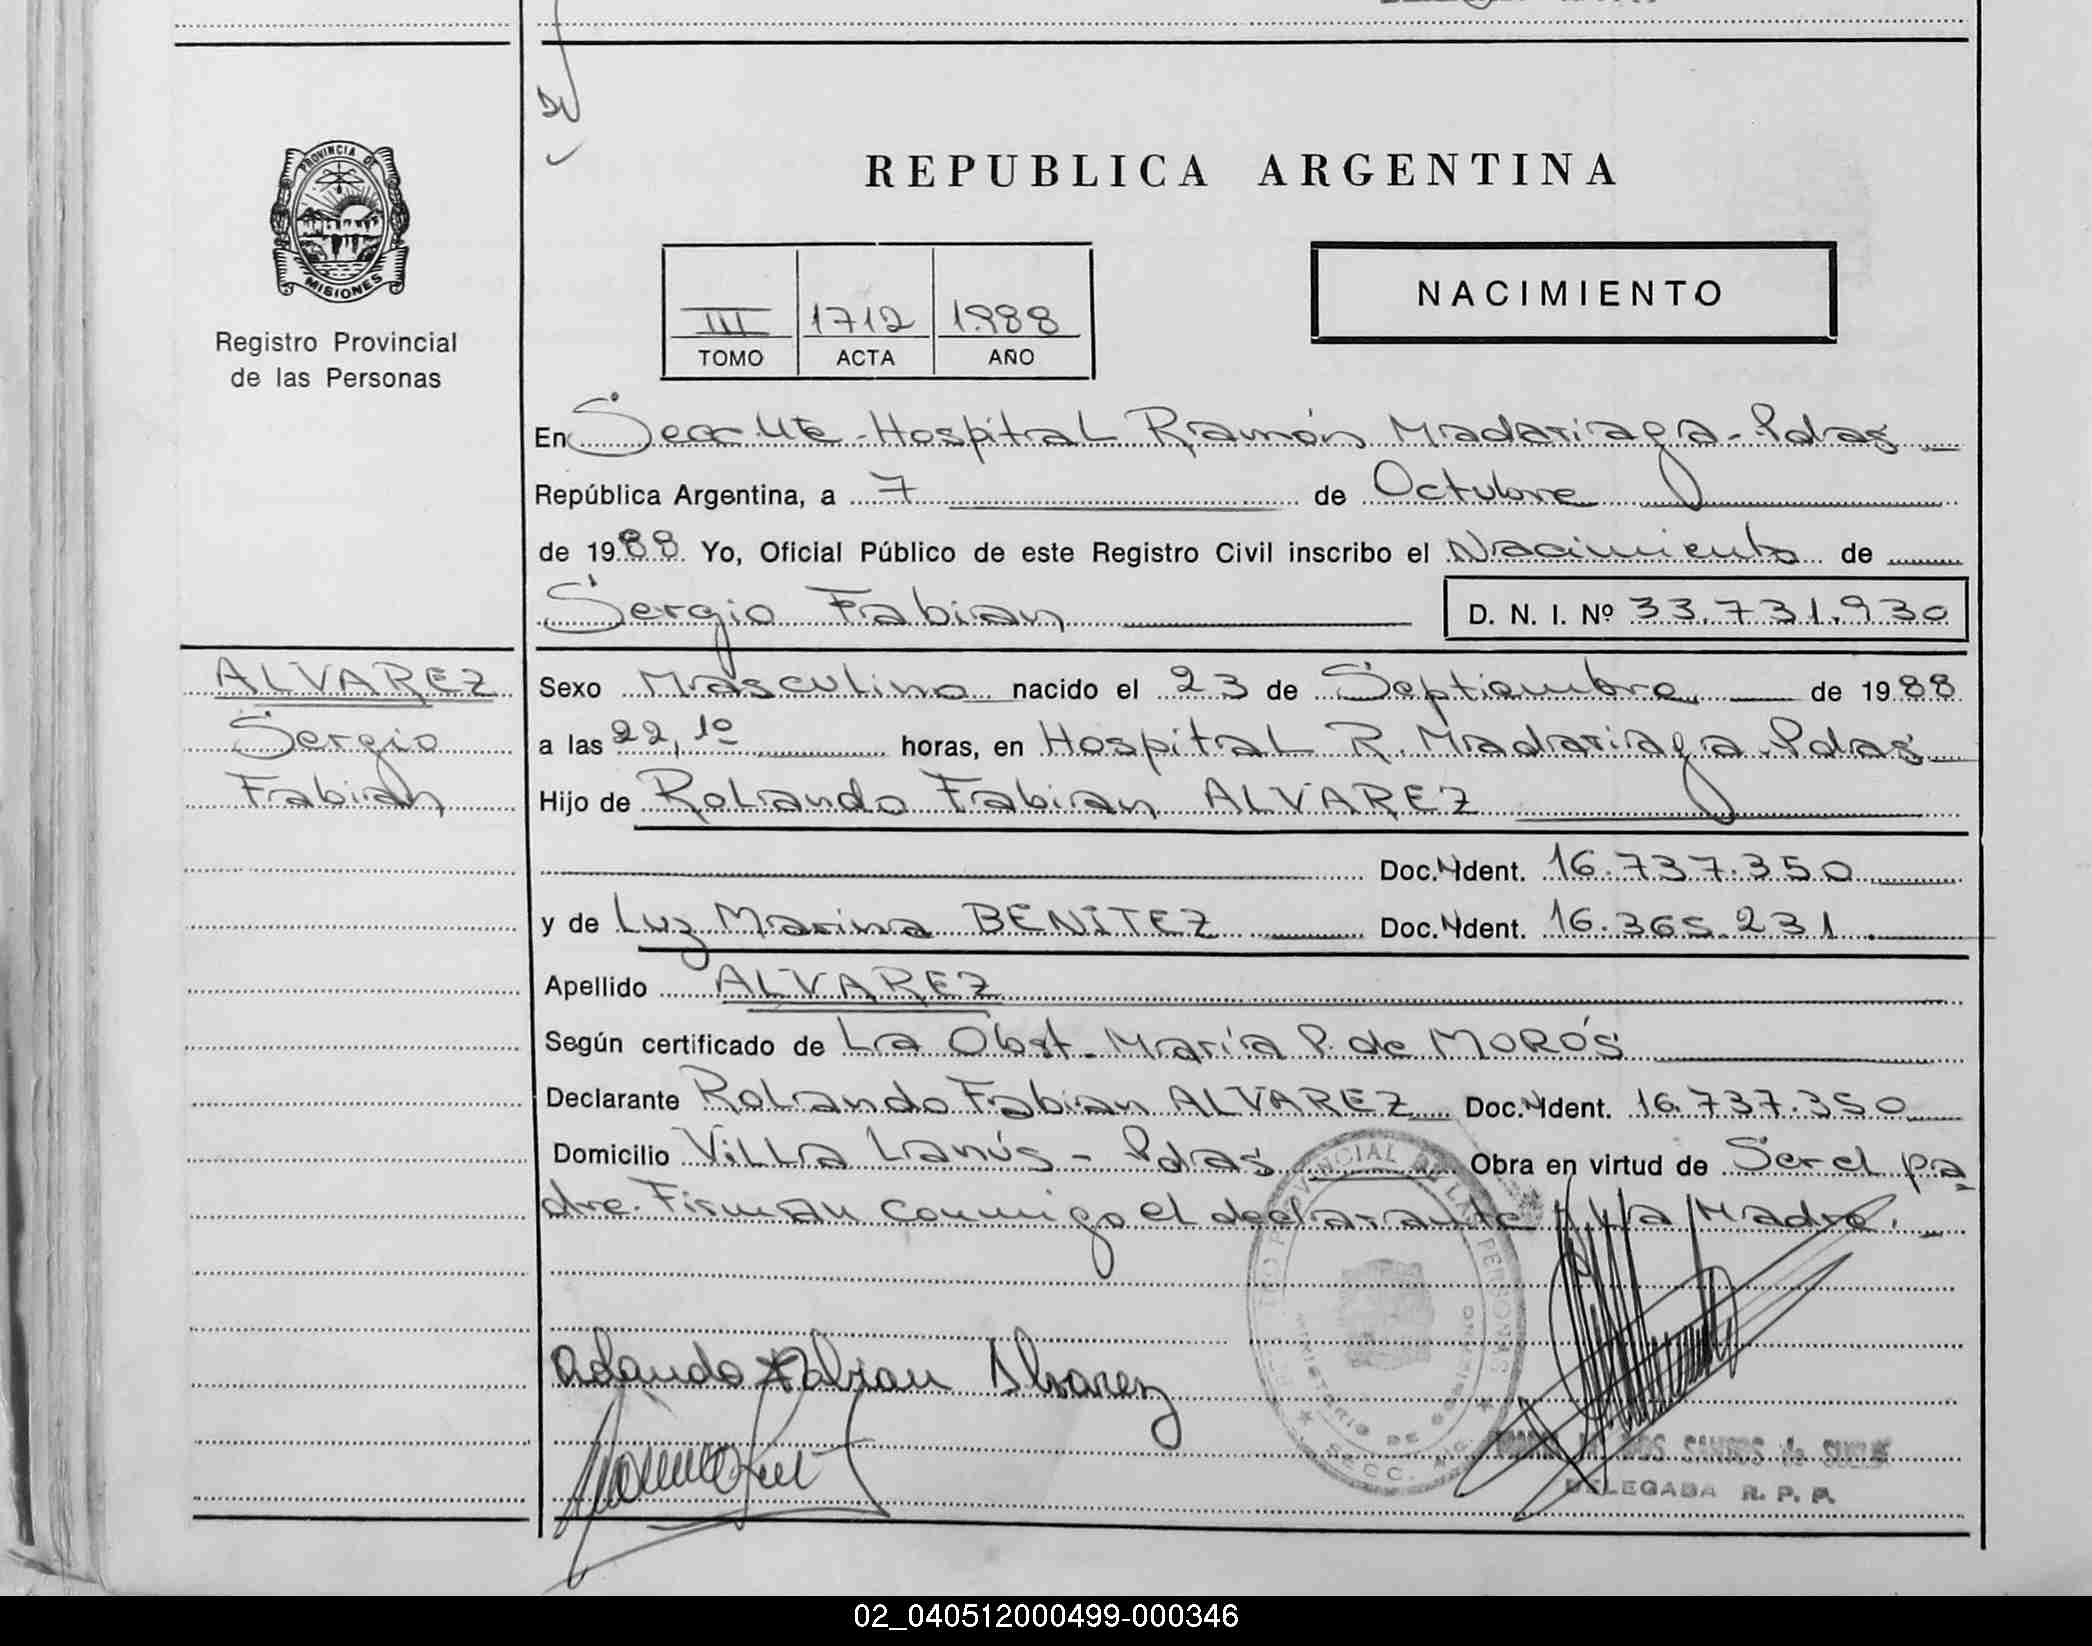 PROVINCIA DE
MISIONES
Registro Provincial
de las Personas
REPUBLICA ARGENTINA
III 1712 1988
TOMO ACTA AÑO
NACIMIENTO
En Hospital Ramón Madariaga - Pdas
República Argentina, a 7 de Octubre
de 1988 Yo, Oficial Público de este Registro Civil inscribo el Nacimiento de
Sergio Fabian D. N. I. Nº 33.731.930
ALVAREZ
Sergio
Fabian
Sexo Masculino nacido el 23 de Septiembre de 1988
a las 22,10 horas, en Hospital R. Madariaga. Pdas
Hijo de Rolando Fabian ALVAREZ
Doc. Ident. 16.737.350
y de Luz Marina BENITEZ Doc. Ident. 16.365.231
Apellido ALVAREZ
Según certificado de La Obst. María P. de MORÓS
Declarante Rolando Fabian ALVAREZ Doc. Ident. 16.737.350
Domicilio Villa Lanús - Pdas Obra en virtud de Ser el pa=
dre. Firman conmigo el declarante y la Madre.
Rolando Fabian Alvarez
DELEGADA R. P. P.
02_040512000499-000346